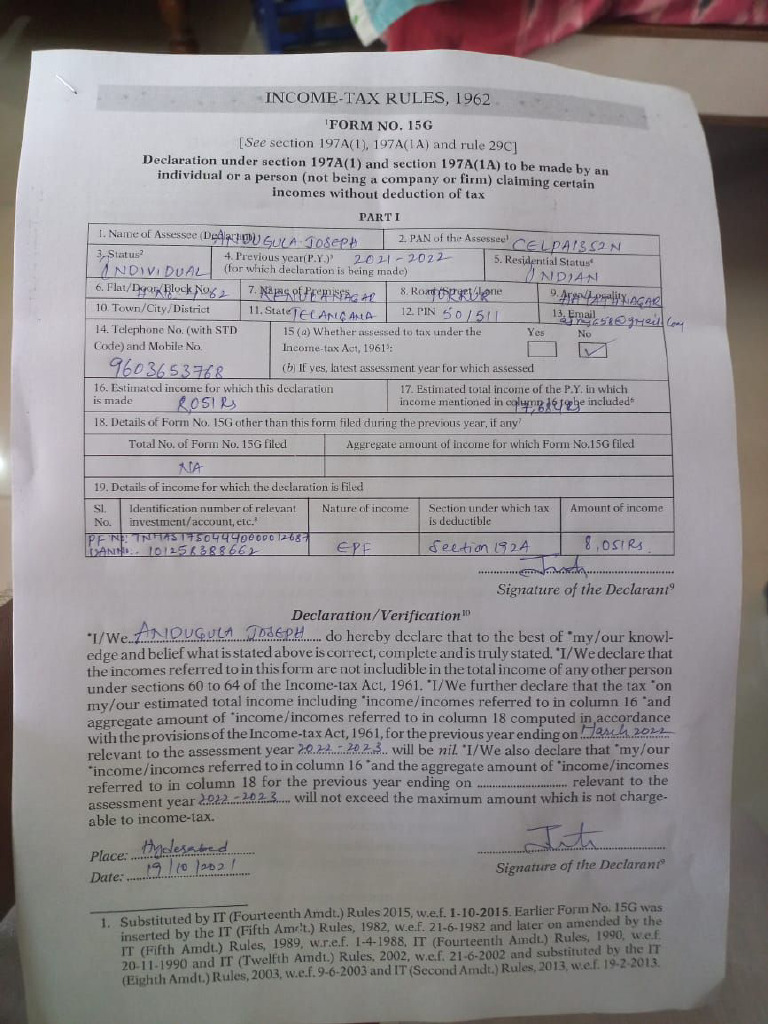 INCOME-TAX RULES, 1962
¹FORM NO. 15G
[See section 197A(1), 197A(1A) and rule 29C]
Declaration under section 197A(1) and section 197A(1A) to be made by an
individual or a person (not being a company or firm) claiming certain
incomes without deduction of tax
PART I
1. Name of Assessee (Declarant) ANDUGULA JOSEPH 2. PAN of the Assessee¹
3. Status² INDIVIDUAL 4. Previous year(P.Y.)³ 2021-2022 (for which declaration is being made) 5. Residential Status⁴ INDIAN
6. Flat/Door/Block No. 7. Name of Premises RENUKA NAGAR 8. Road/Street/Lane TURKUR 9. Area/Locality
10. Town/City/District 11. State TELANGANA 12. PIN 501511 13. Email
14. Telephone No. (with STD Code) and Mobile No. 9603653768
15 (a) Whether assessed to tax under the Income-tax Act, 1961⁵: Yes No ✓
(b) If yes, latest assessment year for which assessed
16. Estimated income for which this declaration is made 8051 Rs
17. Estimated total income of the P.Y. in which income mentioned in column 16 to be included⁶
18. Details of Form No. 15G other than this form filed during the previous year, if any⁷
Total No. of Form No. 15G filed Aggregate amount of income for which Form No.15G filed
NA
19. Details of income for which the declaration is filed
Sl. No. Identification number of relevant investment/account, etc.⁸ Nature of income Section under which tax is deductible Amount of income
PF No: 101258388662 EPF Section 192A 8,051 Rs.
Signature of the Declarant⁹
Declaration/Verification¹⁰
*I/We ANDUGULA JOSEPH do hereby declare that to the best of *my/our knowl-
edge and belief what is stated above is correct, complete and is truly stated. *I/We declare that
the incomes referred to in this form are not includible in the total income of any other person
under sections 60 to 64 of the Income-tax Act, 1961. *I/We further declare that the tax *on
my/our estimated total income including *income/incomes referred to in column 16 *and
aggregate amount of *income/incomes referred to in column 18 computed in accordance
with the provisions of the Income-tax Act, 1961, for the previous year ending on March 2022
relevant to the assessment year 2022-2023 will be nil. *I/We also declare that *my/our
*income/incomes referred to in column 16 *and the aggregate amount of *income/incomes
referred to in column 18 for the previous year ending on .......................... relevant to the
assessment year 2022-2023 will not exceed the maximum amount which is not charge-
able to income-tax.
Place: Hyderabad
Date: 19/10/2021
Signature of the Declarant⁹
1. Substituted by IT (Fourteenth Amdt.) Rules 2015, w.e.f. 1-10-2015. Earlier Form No. 15G was
inserted by the IT (Fifth Amdt.) Rules, 1982, w.e.f. 21-6-1982 and later on amended by the
IT (Fifth Amdt.) Rules, 1989, w.r.e.f. 1-4-1988, IT (Fourteenth Amdt.) Rules, 1990, w.e.f.
20-11-1990 and IT (Twelfth Amdt.) Rules, 2002, w.e.f. 21-6-2002 and substituted by the IT
(Eighth Amdt.) Rules, 2003, w.e.f. 9-6-2003 and IT (Second Amdt.) Rules, 2013, w.e.f. 19-2-2013.